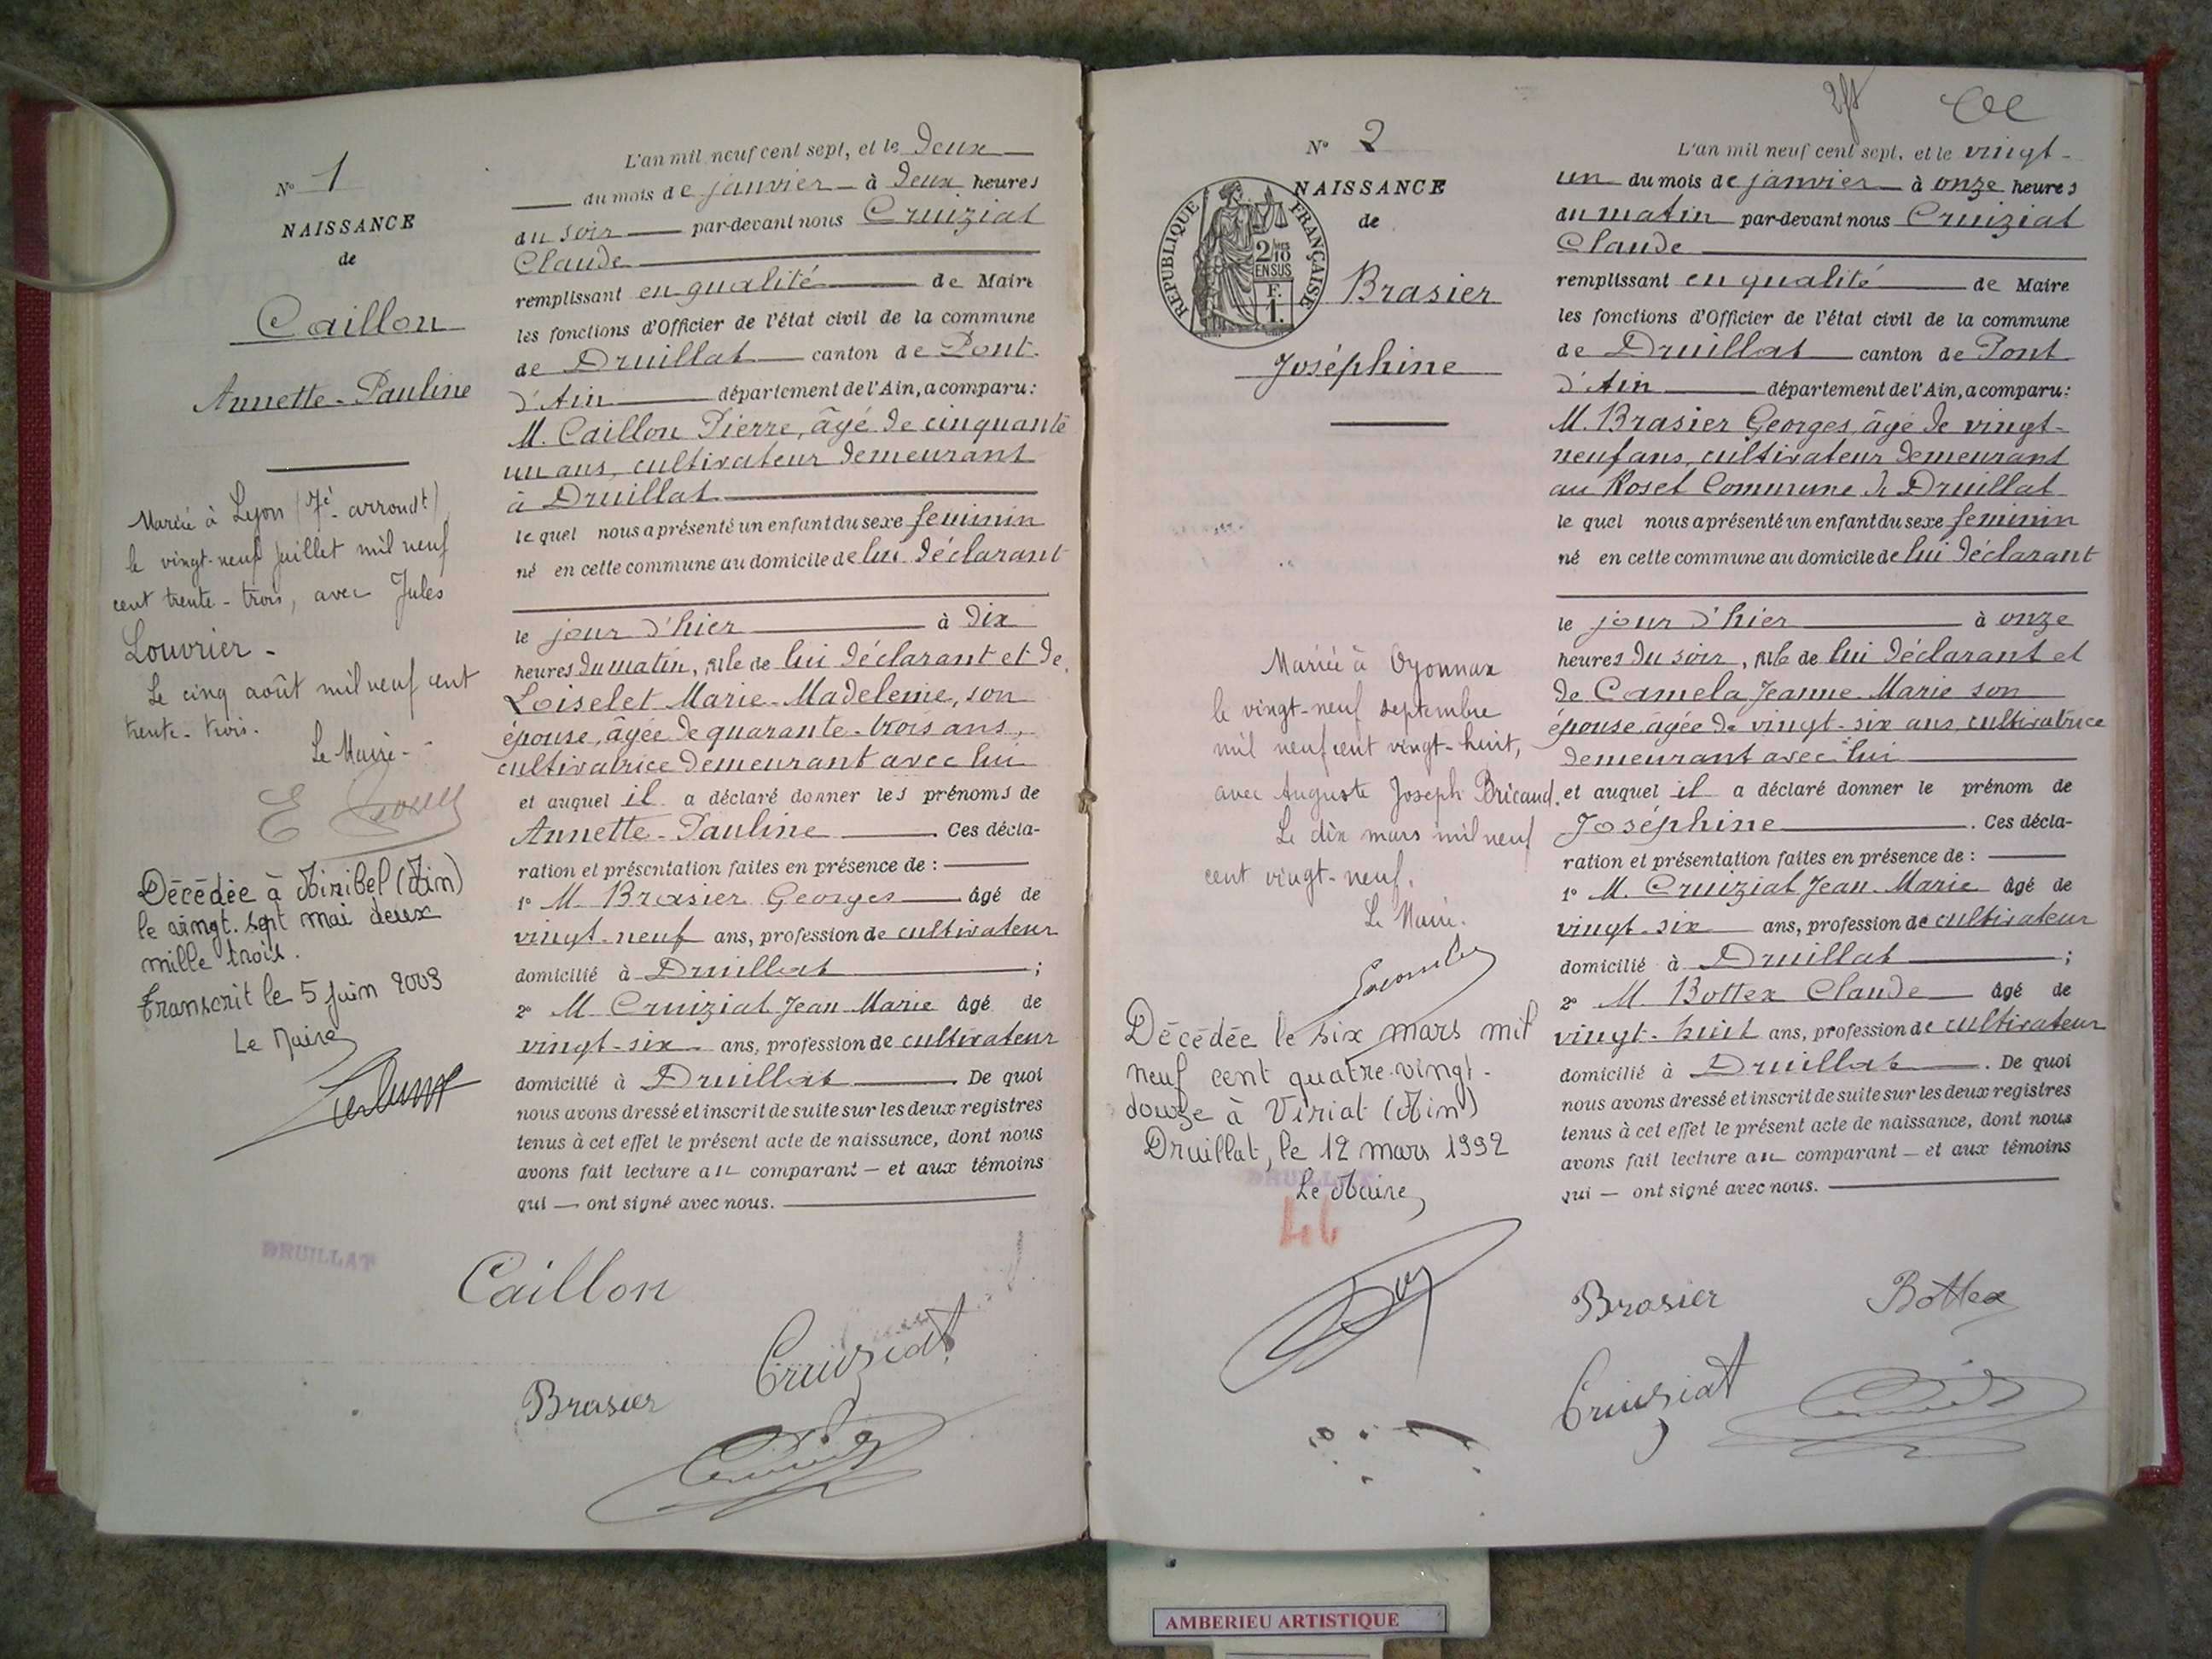 N° 1
NAISSANCE
de
Caillon
Annette-Pauline
Mariée à Lyon (7e arrondt)
le vingt-neuf juillet mil neuf
cent trente-trois, avec Jules
Louvrier -
Le cinq août mil neuf cent
trente-trois.
Le Maire -
Décédée à Miribel (Ain)
le vingt-sept mai deux
mille trois.
Transcrit le 5 juin 2003
Le Maire
DRUILLAT
L'an mil neuf cent sept, et le deux
du mois de janvier à deux heures
du soir par-devant nous Cruiziat
Claude
remplissant en qualité de Maire
les fonctions d'Officier de l'état civil de la commune
de Druillat canton de Pont-
d'Ain département de l'Ain, a comparu:
M. Caillon Pierre, âgé de cinquante
un ans, cultivateur demeurant
à Druillat
lequel nous a présenté un enfant du sexe feminin
né en cette commune au domicile de lui déclarant
le jour d'hier à dix
heures du matin, fille de lui déclarant et de
Loiselet Marie-Madeleine, son
épouse, âgée de quarante-trois ans,
cultivatrice demeurant avec lui
et auquel il a déclaré donner les prénoms de
Annette-Pauline . Ces décla-
ration et présentation faites en présence de :
1° M. Brasier Georges âgé de
vingt-neuf ans, profession de cultivateur
domicilié à Druillat ;
2° M. Cruiziat Jean Marie âgé de
vingt-six ans, profession de cultivateur
domicilié à Druillat . De quoi
nous avons dressé et inscrit de suite sur les deux registres
tenus à cet effet le présent acte de naissance, dont nous
avons fait lecture au comparant — et aux témoins
qui — ont signé avec nous.
Caillon
Cruiziat
Brasier
N° 2
NAISSANCE
de
REPUBLIQUE FRANÇAISE
2/10
EN SUS
F.
1.
Brasier
Joséphine
Mariée à Oyonnax
le vingt-neuf septembre
mil neuf cent vingt-huit,
avec Auguste Joseph Bricaud.
Le dix mars mil neuf
cent vingt-neuf.
Le Maire.
Décédée le six mars mil
neuf cent quatre-vingt-
douze à Viriat (Ain)
Druillat, le 12 mars 1992
DRUILLAT
Le Maire,
L'an mil neuf cent sept, et le vingt-
un du mois de janvier à onze heures
du matin par-devant nous Cruiziat
Claude
remplissant en qualité de Maire
les fonctions d'Officier de l'état civil de la commune
de Druillat canton de Pont
d'Ain département de l'Ain, a comparu:
M. Brasier Georges, âgé de vingt-
neuf ans, cultivateur demeurant
au Roset Commune de Druillat
lequel nous a présenté un enfant du sexe feminin
né en cette commune au domicile de lui déclarant
le jour d'hier à onze
heures du soir, fille de lui déclarant et
de Camela Jeanne Marie son
épouse, agée de vingt-six ans, cultivatrice
demeurant avec lui
et auquel il a déclaré donner le prénom de
Joséphine . Ces décla-
ration et présentation faites en présence de :
1° M. Cruiziat Jean-Marie âgé de
vingt-six ans, profession de cultivateur
domicilié à Druillat ;
2° M. Bottex Claude âgé de
vingt-huit ans, profession de cultivateur
domicilié à Druillat . De quoi
nous avons dressé et inscrit de suite sur les deux registres
tenus à cet effet le présent acte de naissance, dont nous
avons fait lecture au comparant — et aux témoins
qui — ont signé avec nous.
Brasier Bottex
Cruiziat
AMBERIEU ARTISTIQUE